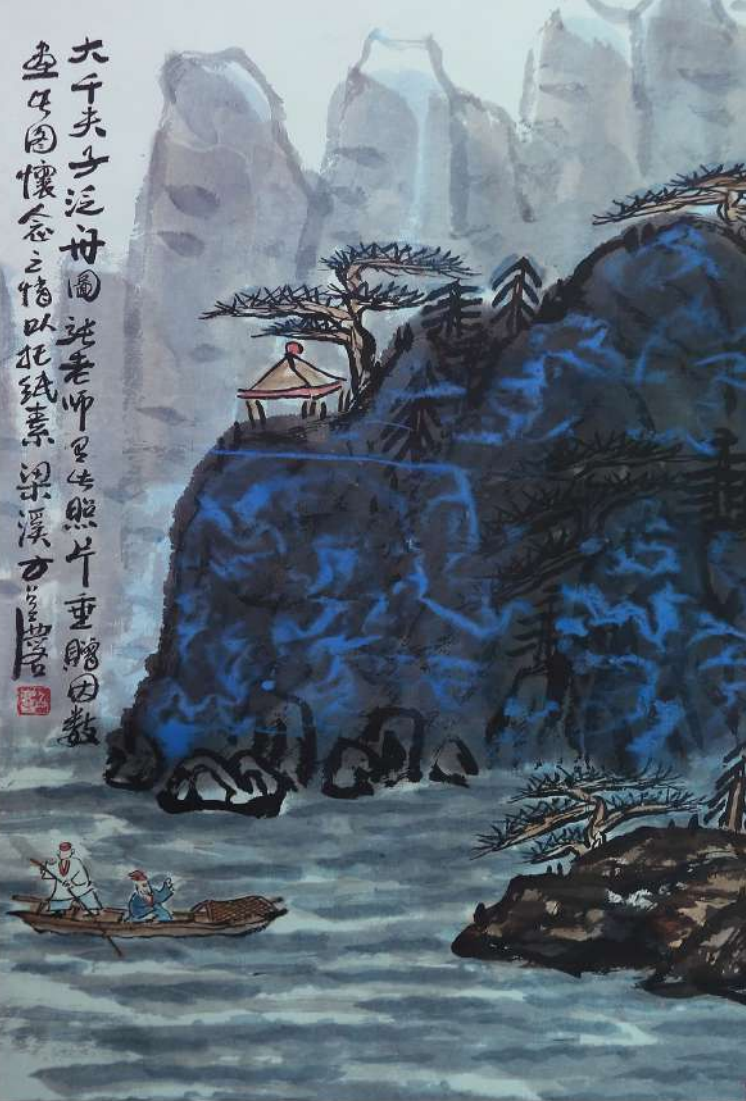 大千夫子泛舟图 张老师曼生照片垂赠因数
画生图怀念之情以托纸素 梁溪方